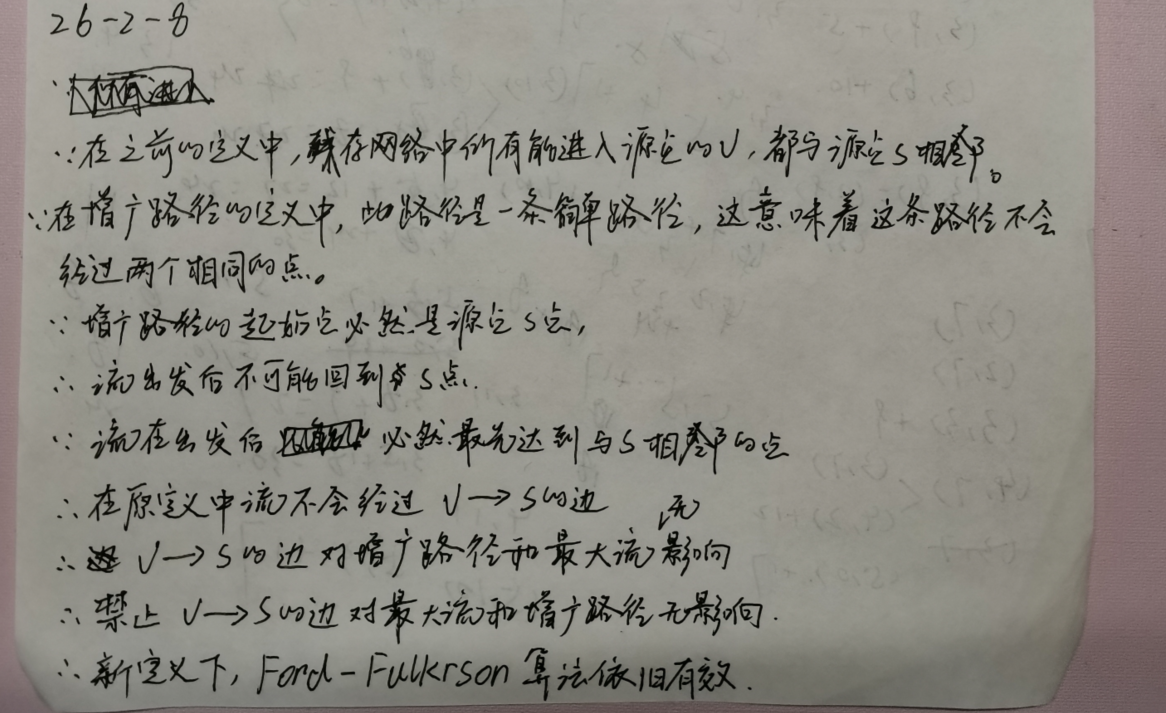 26-2-8
∵在之前的定义中,残存网络中所有能进入源点的V,都与源点S相邻。
∵在增广路径的定义中,此路径是一条简单路径,这意味着这条路径不会
经过两个相同的点。
∵增广路径的起始点必然是源点S点,
∴流出发后不可能回到S点.
∵流在出发后必然最先达到与S相邻的点
∴在原定义中流不会经过V→S的边
∴V→S的边对增广路径和最大流无影响
∴禁止V→S的边对最大流和增广路径无影响.
∴新定义下,Ford-Fulkrson算法依旧有效.